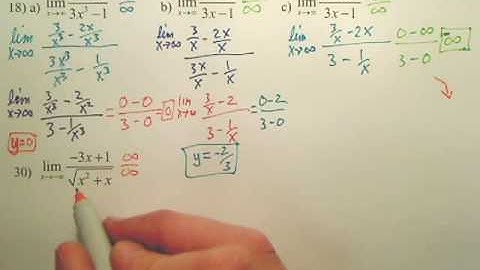 18) a) lim x→∞ / 3x³−1 ∞ b) lim x→∞ / 3x−1 c) lim x→∞ / 3x−1 ∞
lim x→∞ (3/x³ − 2x/x³) / (3x³/x³ − 1/x³) lim x→∞ (3/x − 2x/x) / (3x/x − 1/x) lim x→∞ (3/x − 2x) / (3 − 1/x) (0−∞)/(3−0) ∞
lim x→∞ (3/x³ − 2/x²) / (3 − 1/x³) = (0−0)/(3−0) = 0 lim x→∞ (3/x − 2) / (3 − 1/x) = (0−2)/(3−0)
y=0 y=−2/3
30) lim x→−∞ (−3x+1) / √(x²+x) ∞/∞